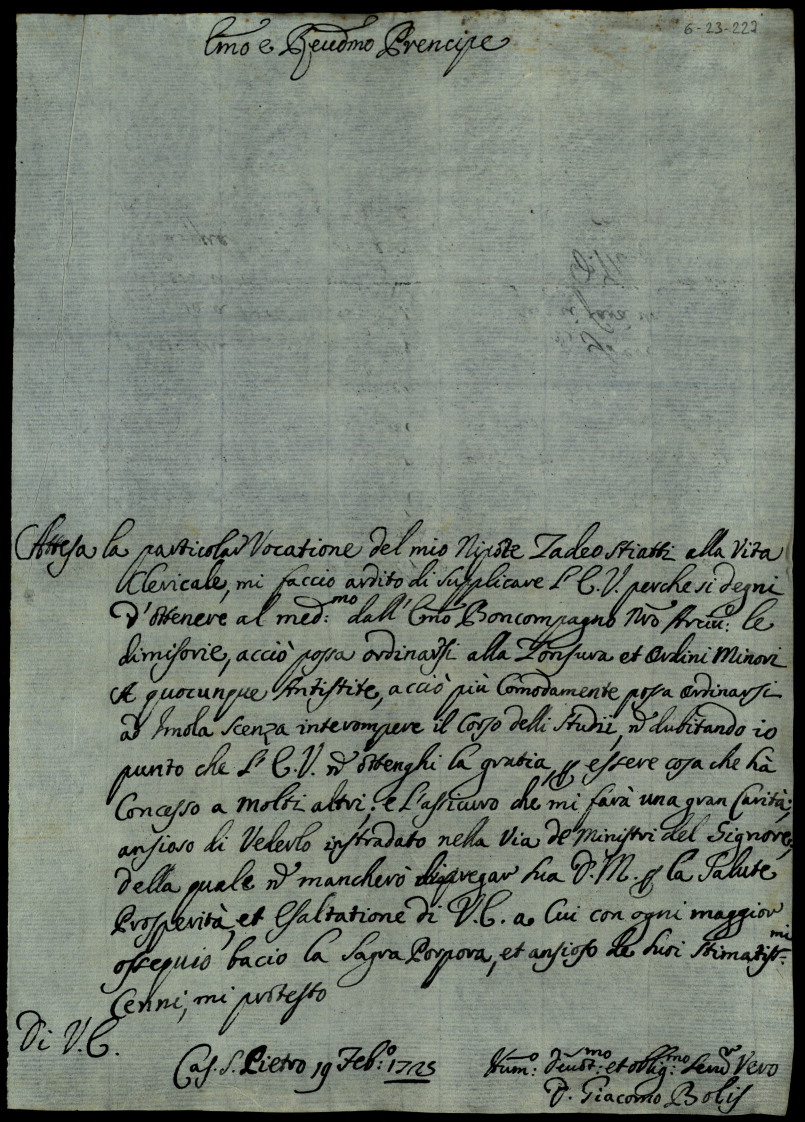 6-23-227
Emo e Rēuđmo Prencipe
Attesa la particolar Vocatione del mio Nipote Tadeo Stiatti alla Vita
Clericale, mi faccio ardito di supplicare L'E.V. perche si degni
d'ottenere al med:mo dall'Emo Boncompagno Nrō Arciu: le
dimisorie, acciò possa ordinarsi alla Tonsura et Ordini Minori
A quocunque Antistite, acciò più Comodamente possa ordinarsi
ad Imola scenza interompere il Corso delli Studii, nō dubitando io
punto che L'E.V. nō ottenghi la gratia, p essere cosa che hà
Concesso a molti altri; e L'assicuro che mi farà una gran Carità;
ansioso di Vederlo instradato nella Via de Ministri del Signore,
della quale nō mancherò di pregar Sua D.M. p la Salute
Prosperità, et Esaltatione di V.E. a Cui con ogni maggior
ossequio bacio la Sagra Porpora, et ansioso de suoi stimatiss:mi
Cenni, mi protesto
Di V.E.
Cas. S. Pietro 19 Feb:o 1725
Hum:o deuot:mo et oblig:mo Serur Vero
D. Giacomo Bolis